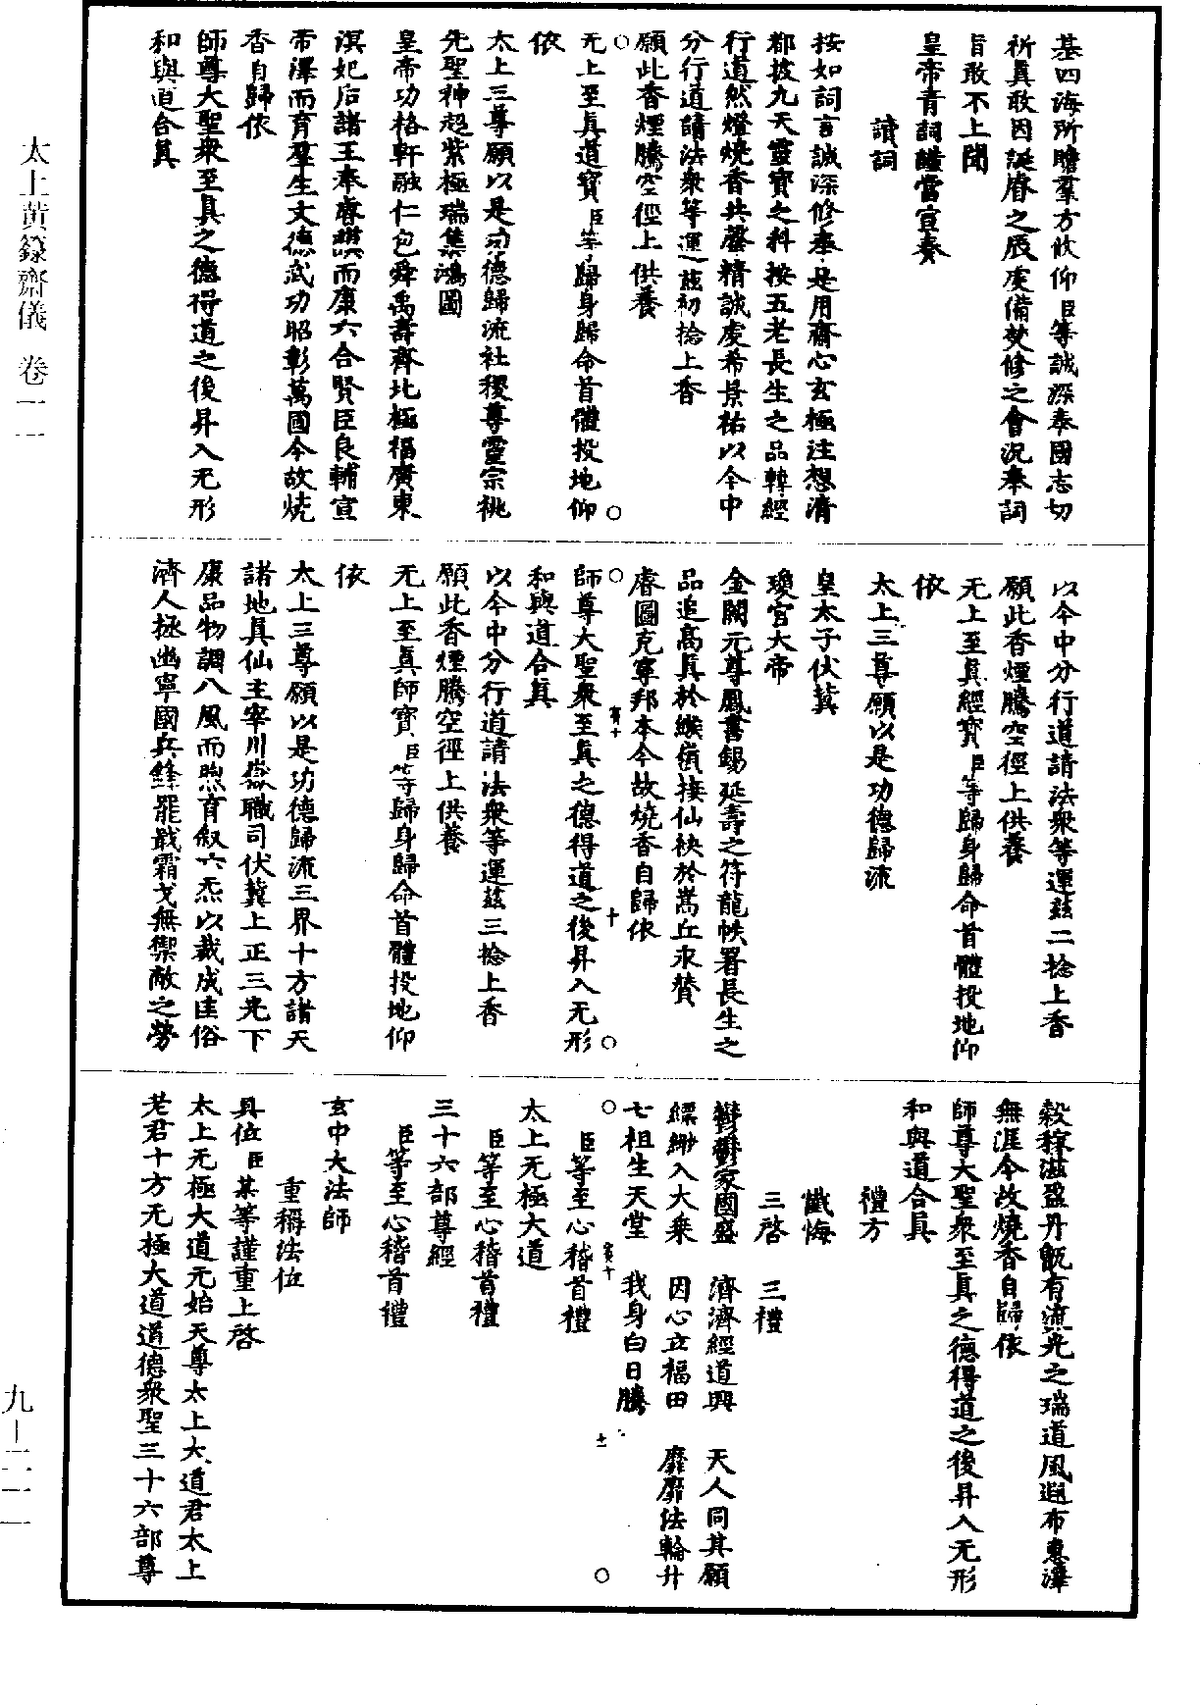 基四海所瞻羣方攸仰臣等誠深奉國志切
祈眞敢因誕睿之辰虔備焚修之會況奉詞
旨敢不上聞
皇帝青詞謹當宣奏
讀詞
按如詞言誠深修奉是用齋心玄極注想清
都披九天靈寶之科按五老長生之品轉經
行道然燈燒香共罄精誠虔希景祐以今中
分行道請法衆等運茲初捻上香
願此香煙騰空徑上供養
无上至眞道寶臣等歸身歸命首體投地仰
依
太上三尊願以是功德歸流社稷尊靈宗祧
先聖神超紫極瑞集鴻圖
皇帝功格軒融仁包舜禹壽齊北極福廣東
溟妃后諸王奉睿謨而康六合賢臣良輔宣
帝澤而育羣生文德武功昭彰萬國今故燒
香自歸依
師尊大聖衆至眞之德得道之後昇入无形
和與道合眞
以今中分行道請法衆等運茲二捻上香
願此香煙騰空徑上供養
无上至眞經寶臣等歸身歸命首體投地仰
依
太上三尊願以是功德歸流
皇太子伏冀
瓊宮大帝
金闕元尊鳳書錫延壽之符龍帙署長生之
品追高眞於緱嶺接仙袂於嵩丘永贊
睿圖克寧邦本今故燒香自歸依
師尊大聖衆至眞之德得道之後昇入无形
和與道合眞
以今中分行道請法衆等運茲三捻上香
願此香煙騰空徑上供養
无上至眞師寶臣等歸身歸命首體投地仰
依
太上三尊願以是功德歸流三界十方諸天
諸地眞仙主宰川嶽職司伏冀上正三光下
康品物調八風而煦育叙六炁以裁成匡俗
濟人拯幽寧國兵鋒罷戢霜戈無禦敵之勞
穀稼滋盈丹甑有流光之瑞道風遐布惠澤
無涯今故燒香自歸依
師尊大聖衆至眞之德得道之後昇入无形
和與道合眞
禮方
懺悔
三啓 三禮
鬱鬱家國盛 濟濟經道興 天人同其願
縹緲入大乘 因心立福田 靡靡法輪升
七祖生天堂 我身白日騰
臣等至心稽首禮
太上无極大道
臣等至心稽首禮
三十六部尊經
臣等至心稽首禮
玄中大法師
重稱法位
具位臣某等謹重上啓
太上无極大道元始天尊太上大道君太上
老君十方无極大道道德衆聖三十六部尊
太上黃籙齋儀 卷一一
九—二一一